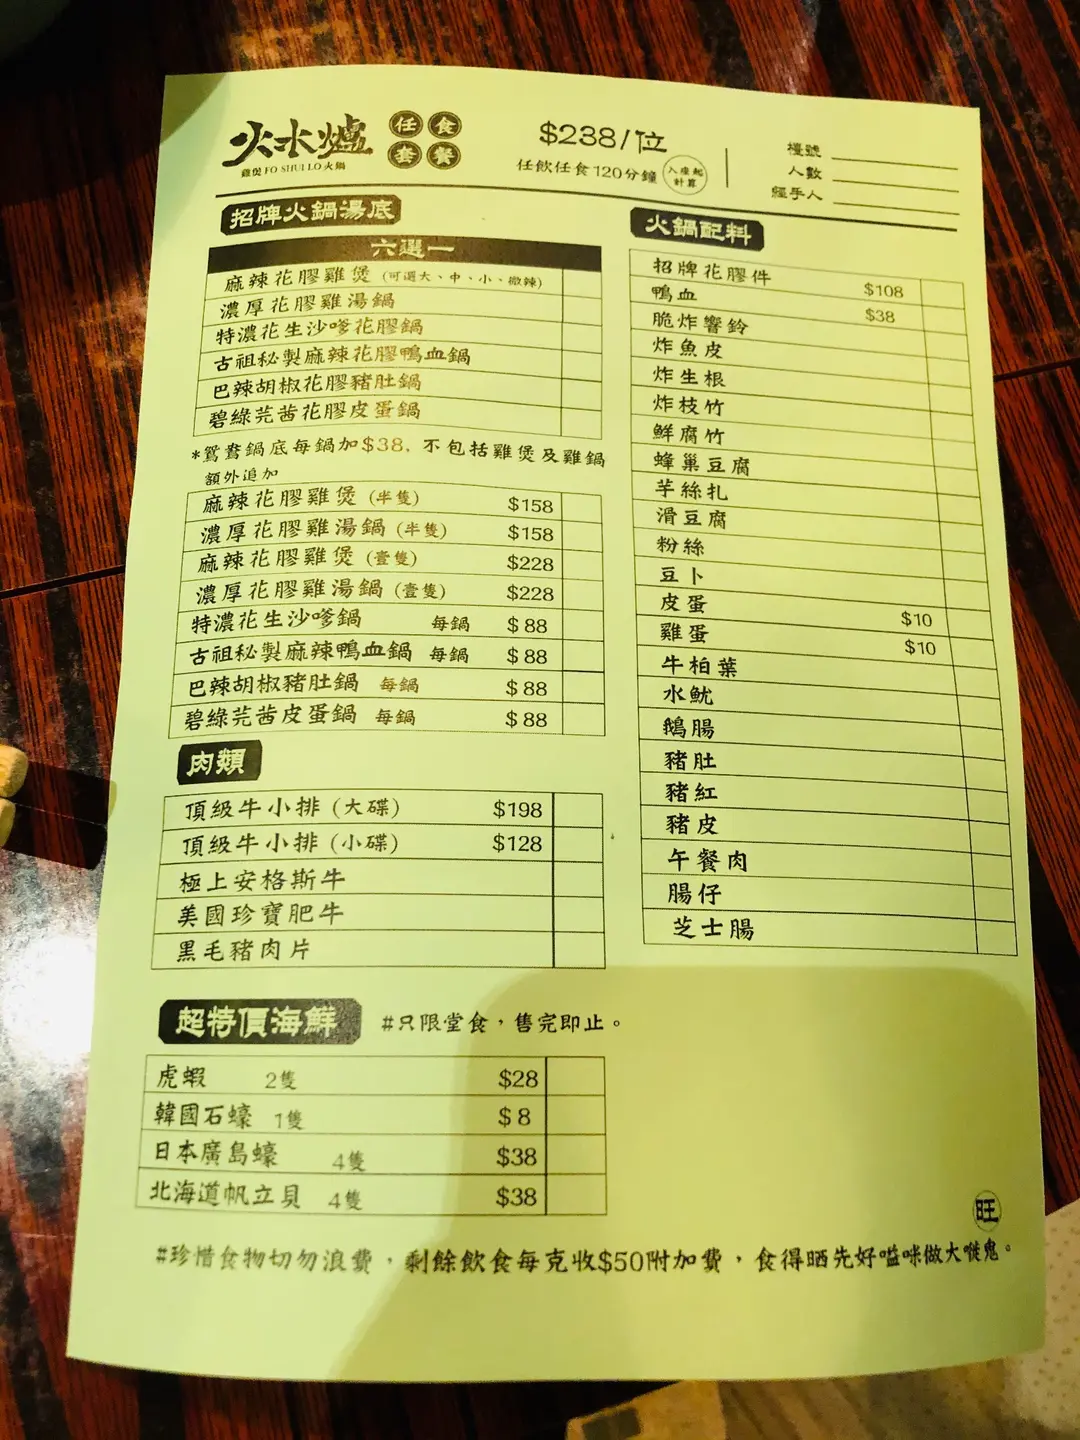 火水爐
雞煲 FO SHUI LO 火鍋
任食套餐
$238/位
任飲任食120分鐘
入座起計算
檯號
人數
經手人
招牌火鍋湯底
六選一
麻辣花膠雞煲 (可選大、中、小、微辣)
濃厚花膠雞湯鍋
特濃花生沙嗲花膠鍋
古祖秘製麻辣花膠鴨血鍋
巴辣胡椒花膠豬肚鍋
碧綠芫茜花膠皮蛋鍋
*鴛鴦鍋底每鍋加$38, 不包括雞煲及雞鍋
額外追加
麻辣花膠雞煲 (半隻) $158
濃厚花膠雞湯鍋 (半隻) $158
麻辣花膠雞煲 (壹隻) $228
濃厚花膠雞湯鍋 (壹隻) $228
特濃花生沙嗲鍋 每鍋 $88
古祖秘製麻辣鴨血鍋 每鍋 $88
巴辣胡椒豬肚鍋 每鍋 $88
碧綠芫茜皮蛋鍋 每鍋 $88
肉類
頂級牛小排 (大碟) $198
頂級牛小排 (小碟) $128
極上安格斯牛
美國珍寶肥牛
黑毛豬肉片
超特價海鮮 #只限堂食，售完即止。
虎蝦 2隻 $28
韓國石蠔 1隻 $8
日本廣島蠔 4隻 $38
北海道帆立貝 4隻 $38
火鍋配料
招牌花膠件 $108
鴨血 $38
脆炸響鈴
炸魚皮
炸生根
炸枝竹
鮮腐竹
蜂巢豆腐
芋絲扎
滑豆腐
粉絲
豆卜
皮蛋 $10
雞蛋 $10
牛柏葉
水魷
鵝腸
豬肚
豬紅
豬皮
午餐肉
腸仔
芝士腸
旺
#珍惜食物切勿浪費，剩餘飲食每克收$50附加費，食得晒先好嗌咪做大嘥鬼。